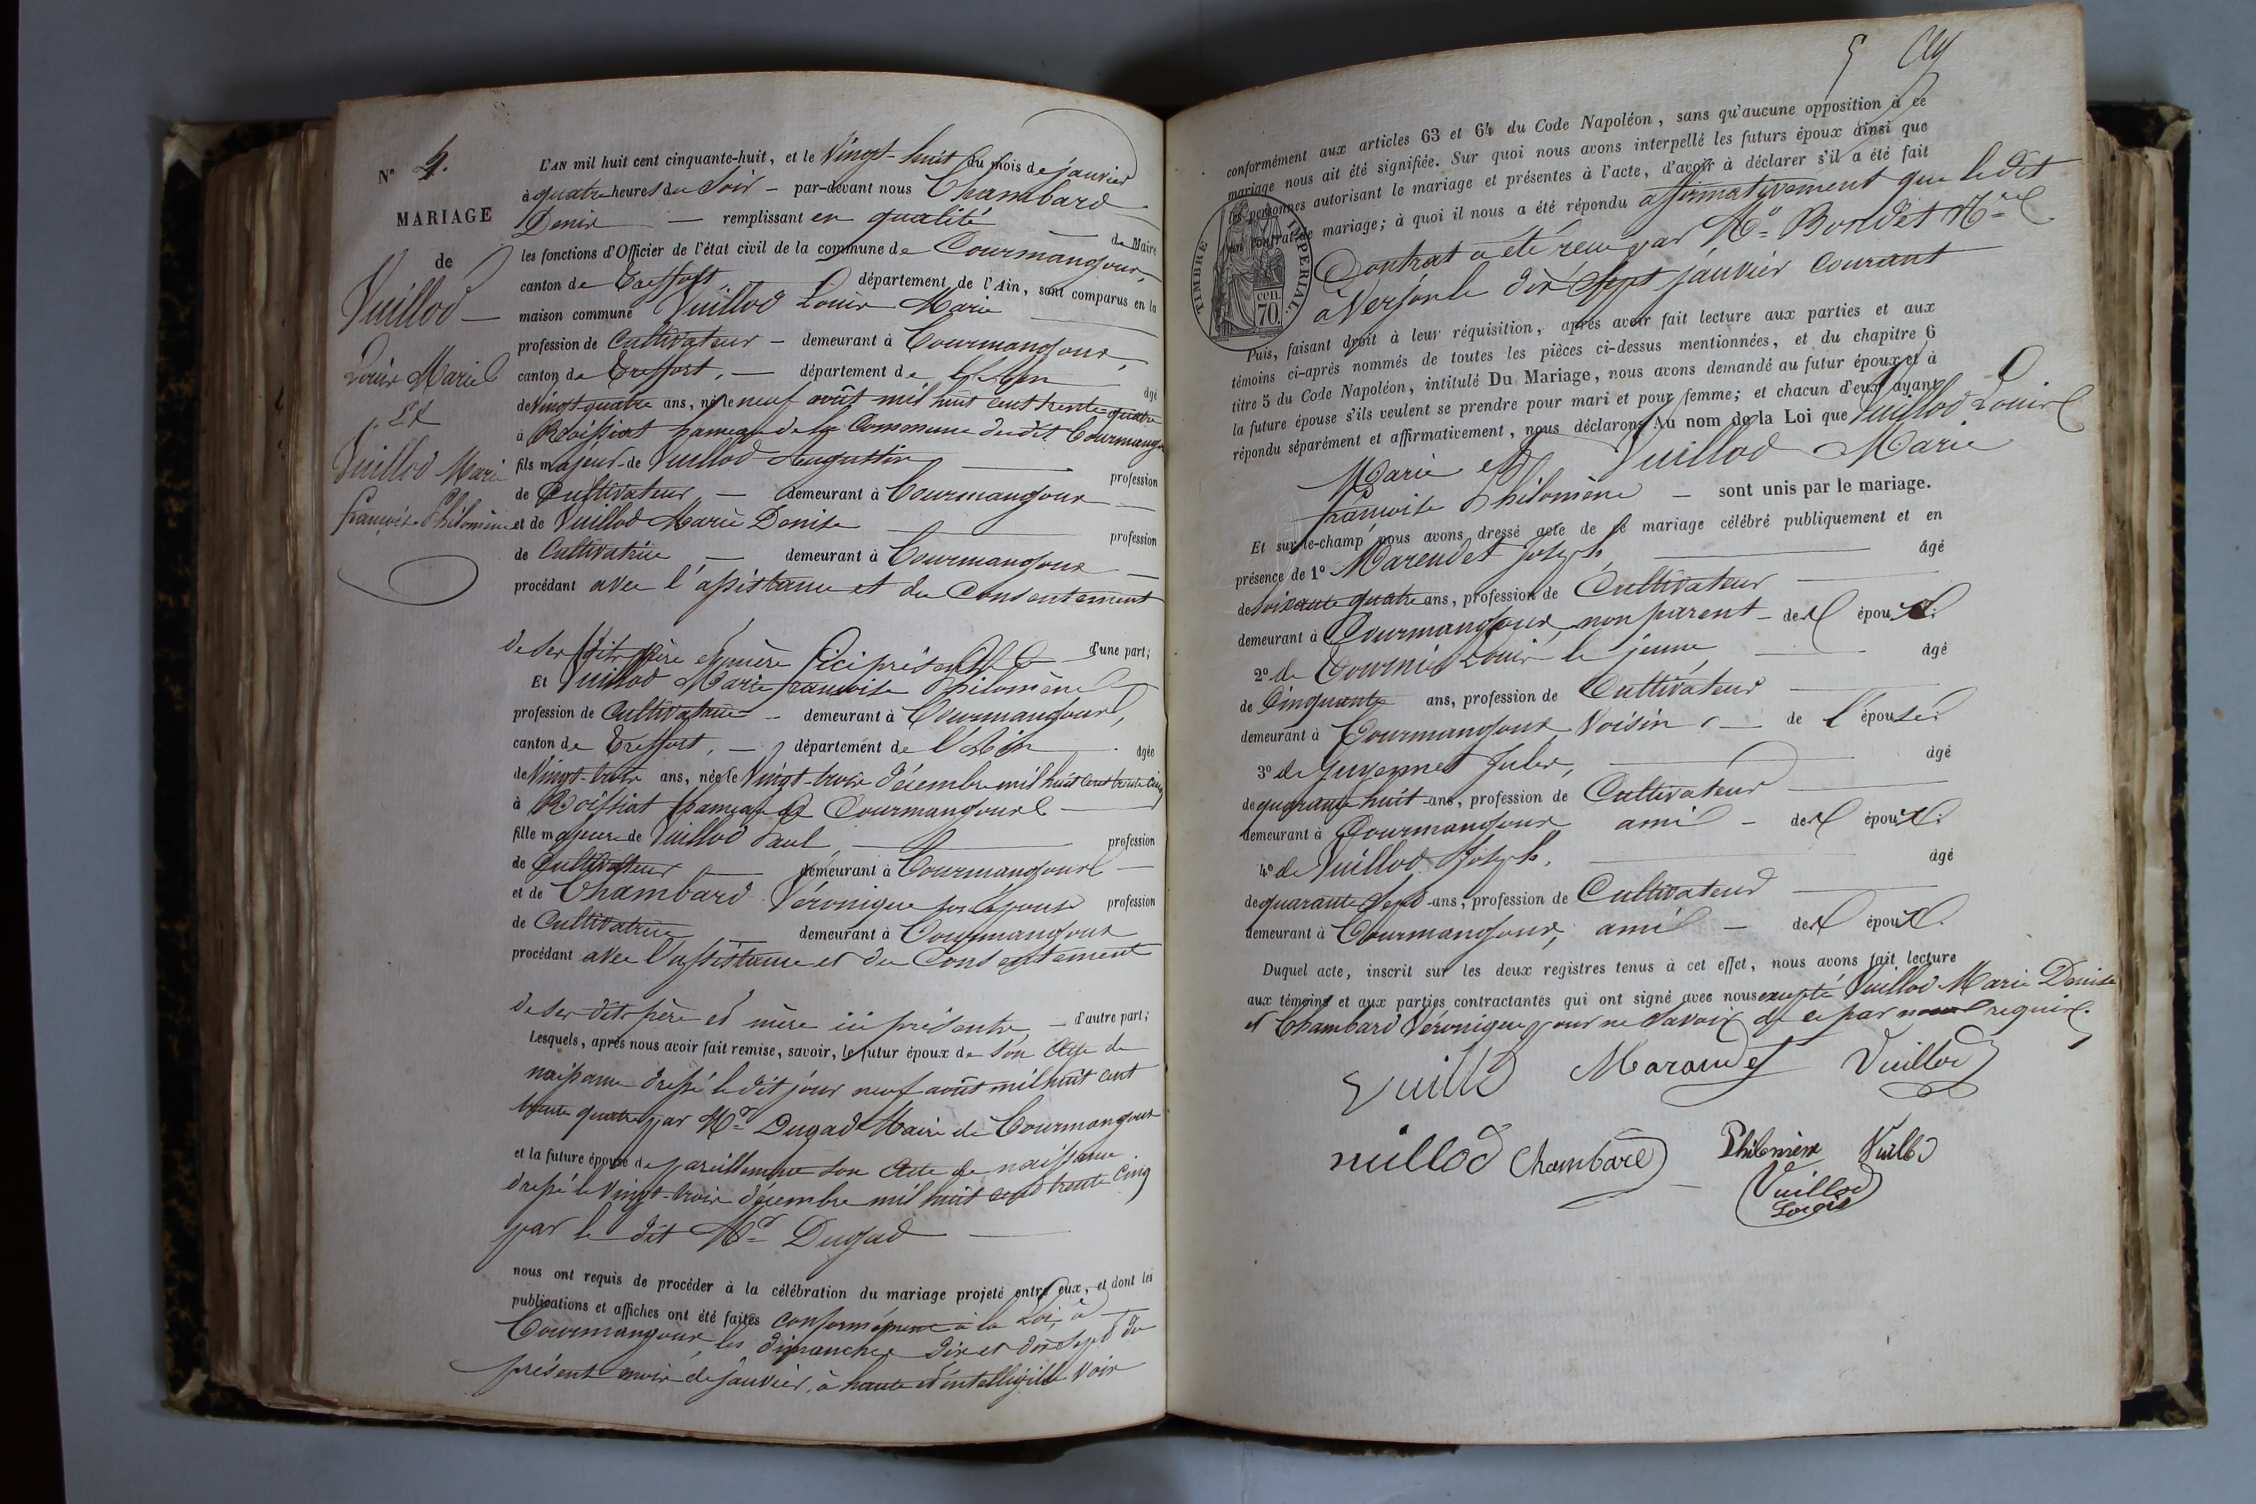 N° 4.
MARIAGE
de
Vuillod
Louis Marie
Et
Vuillod Marie
françoise Philomène
L'AN mil huit cent cinquante-huit, et le Vingt-huit du mois de janvier
à quatre heures du Soir - par-devant nous Chambard
Denis — remplissant en qualité de Maire
les fonctions d'Officier de l'état civil de la commune de Courmangoux,
canton de Treffort, département de l'Ain, sont comparus en la
maison commune Vuillod Louis Marie
profession de Cultivateur - demeurant à Courmangoux,
canton de Treffort, — département de l'Ain âgé
de Vingt quatre ans, né le neuf août mil huit cent trente-quatre
à Roissiat hameau de la Commune du dit Courmangoux
fils majeur de Vuillod Augustin profession
de Cultivateur — demeurant à Courmangoux
et de Vuillod Marie Denise profession
de Cultivatrice — demeurant à Courmangoux
procédant avec l'assistance et du Consentement
de ses dits père et mère ici présents d'une part;
Et Vuillod Marie françoise Philomène
profession de Cultivatrice - demeurant à Courmangoux,
canton de Treffort, — département de l'Ain âgée
de Vingt-trois ans, née le Vingt-trois décembre mil huit cent trente cinq
à Roissiat hameau de Courmangoux
fille majeure de Vuillod Paul, profession
de Cultivateur demeurant à Courmangoux
et de Chambard Véronique son épouse profession
de Cultivatrice demeurant à Courmangoux
procédant avec l'assistance et du Consentement
de ses dits père et mère ici présents, — d'autre part;
Lesquels, après nous avoir fait remise, savoir, le futur époux de son Acte de
naissance dressé le dit jour neuf août mil huit cent
trente quatre par Mr Dugad Maire de Courmangoux
et la future épouse de pareillement son Acte de naissance
dressé le Vingt-trois décembre mil huit cent trente cinq
par le dit Mr Dugad
nous ont requis de procéder à la célébration du mariage projeté entre eux, et dont les
publications et affiches ont été faites conformément à la Loi, à
Courmangoux, les dimanches dix et dix Sept du
présent mois de janvier, à haute et intelligible Voix
5
conformément aux articles 63 et 64 du Code Napoléon, sans qu'aucune opposition à ce
mariage nous ait été signifiée. Sur quoi nous avons interpellé les futurs époux ainsi que
les personnes autorisant le mariage et présentes à l'acte, d'avoir à déclarer s'il a été fait
un contrat de mariage; à quoi il nous a été répondu affirmativement que le dit
Contrat a été reçu par Me Bondet Nre
à Verjon le dix Sept janvier courant
TIMBRE IMPÉRIAL.
cen.
70.
Puis, faisant droit à leur réquisition, après avoir fait lecture aux parties et aux
témoins ci-après nommés de toutes les pièces ci-dessus mentionnées, et du chapitre 6
titre 5 du Code Napoléon, intitulé Du Mariage, nous avons demandé au futur époux et à
la future épouse s'ils veulent se prendre pour mari et pour femme; et chacun d'eux ayant
répondu séparément et affirmativement, nous déclarons Au nom de la Loi que Vuillod Louis
Marie et Vuillod Marie
françoise Philomène — sont unis par le mariage.
Et sur-le-champ nous avons dressé acte de ce mariage célébré publiquement et en
présence de 1° Marendet Joseph âgé
de soixante quatre ans, profession de Cultivateur
demeurant à Courmangoux, non parent - des époux.
2° de Tournier Louis le jeune âgé
de Cinquante ans, profession de Cultivateur
demeurant à Courmangoux Voisin, — de l'épouse.
3° de Guyennet Jules, âgé
de quarante huit ans, profession de Cultivateur
demeurant à Courmangoux ami - des époux.
4° de Vuillod Joseph, âgé
de quarante Sept ans, profession de Cultivateur
demeurant à Courmangoux, ami — des époux.
Duquel acte, inscrit sur les deux registres tenus à cet effet, nous avons fait lecture
aux témoins et aux parties contractantes qui ont signé avec nous excepté Vuillod Marie Denise
et Chambard Véronique pour ne Savoir de ce par nous requis.
Vuillod Marandet Vuillod
vuillod Chambard Philomène Vuillod
Vuillod
Louis